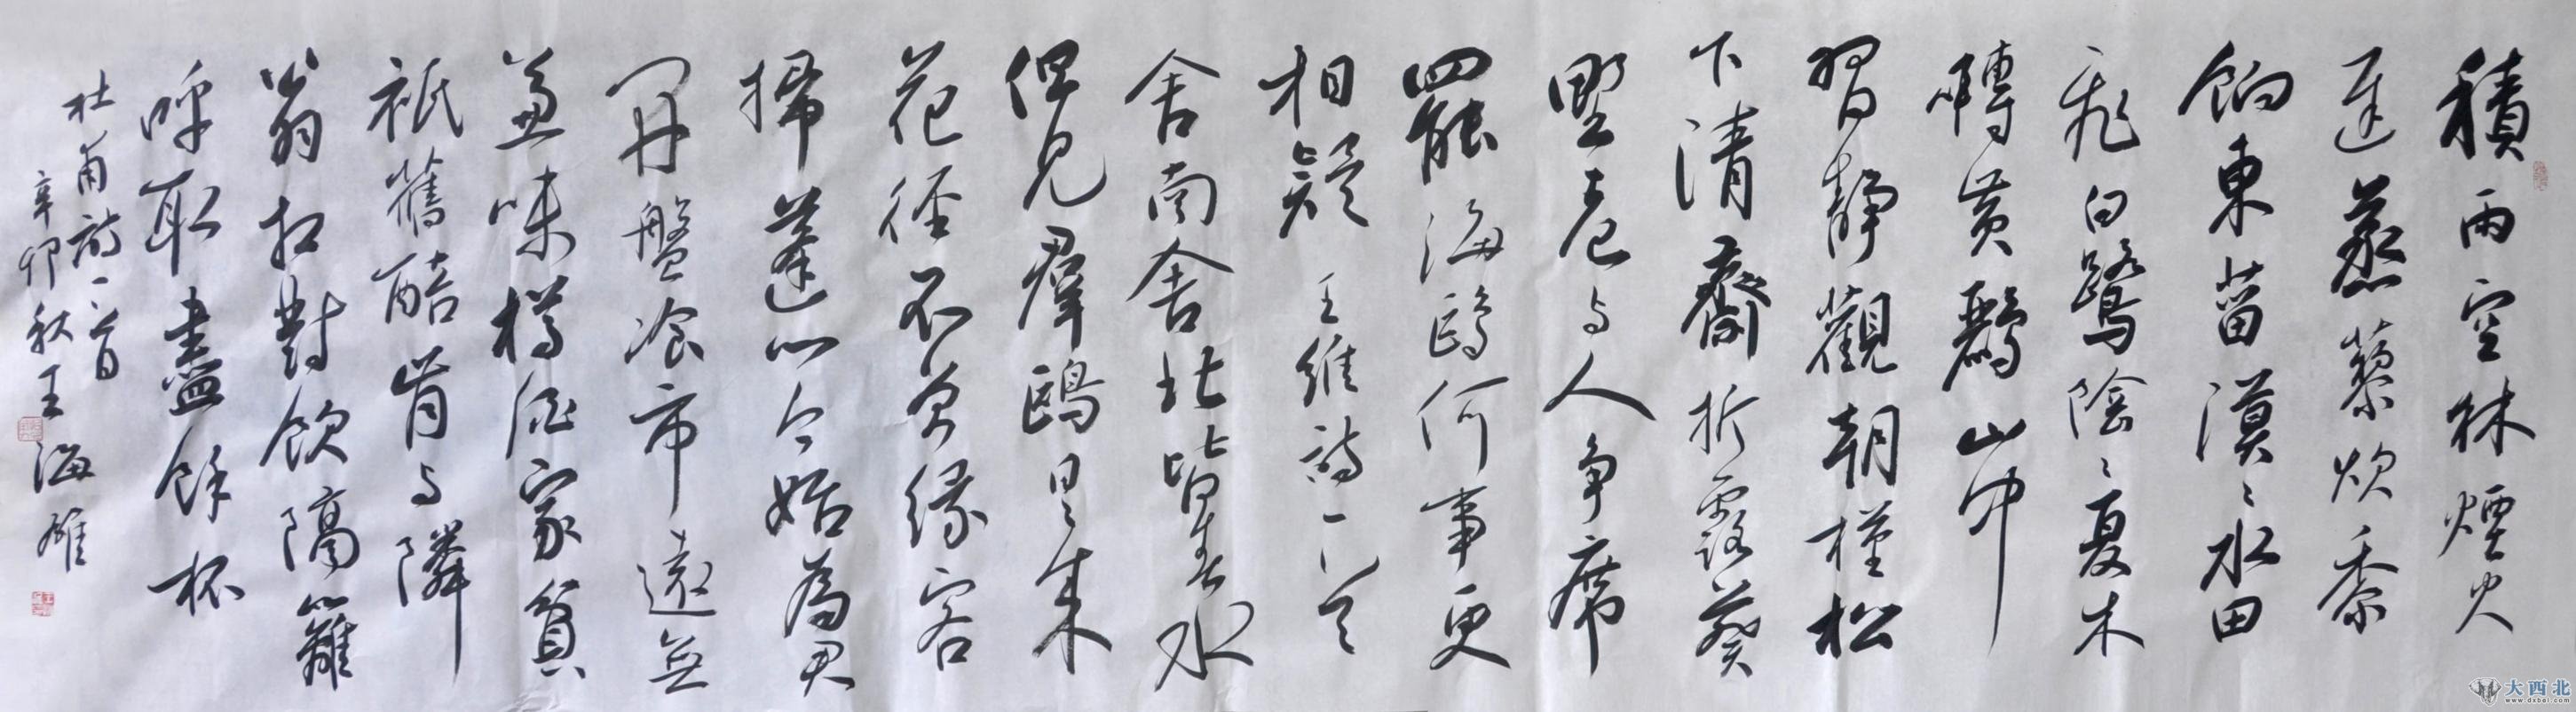 積雨空林煙火
遲蒸藜炊黍
餉東菑漠〻水田
飛白鷺陰〻夏木
囀黃鸝山中
習靜觀朝槿松
下清齋折露葵
野老与人争席
罷海鷗何事更
相疑 王維詩一首
舍南舍北皆春水
但見羣鷗日〻來
花徑不曾緣客
掃蓬門今始為君
開盤飡市遠無
兼味樽酒家貧
祇舊醅肯与隣
翁相對飲隔籬
呼取盡餘杯
杜甫詩一首
辛卯秋王海雄
大西北
www.dxbei.com